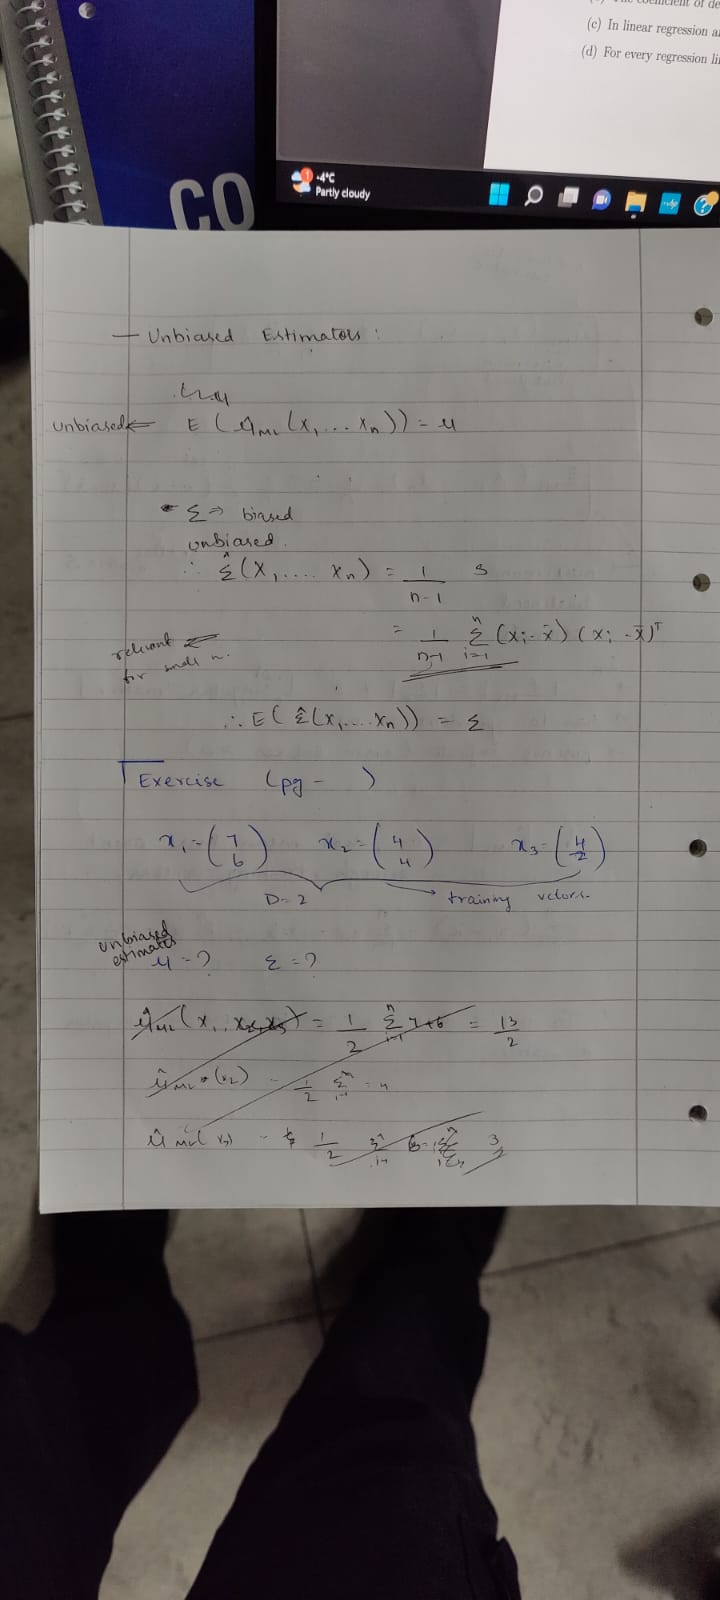 (c) In linear regression
(d) For every regression
-4°C
Partly cloudy
CO
— Unbiased Estimators :
unbiased ⇐ E ( μ̂ML (x1, ... xn)) = μ
Σ ⇒ biased
unbiased.
∴ Σ̂ (x1, .... xn) = 1/(n-1) S
relevant for small n. ⇐
= 1/(n-1) Σ_{i=1}^{n} (xi - x̄) (xi - x̄)ᵀ
∴ E ( Σ̂ (x1, .... xn)) = Σ
Exercise (pg - )
x1 = (7 6) x2 = (4 4) x3 = (4 2)
D = 2 → training vectors.
unbiased estimates
μ = ? Σ = ?
μ̂ML (x1, x2, x3) = 1/2 Σ_{i=1}^{n} 7+6 = 13/2
μ̂ML (x2) = 1/2 Σ_{i=1}^{n} = 4
μ̂ML (x3) = 1/2 3